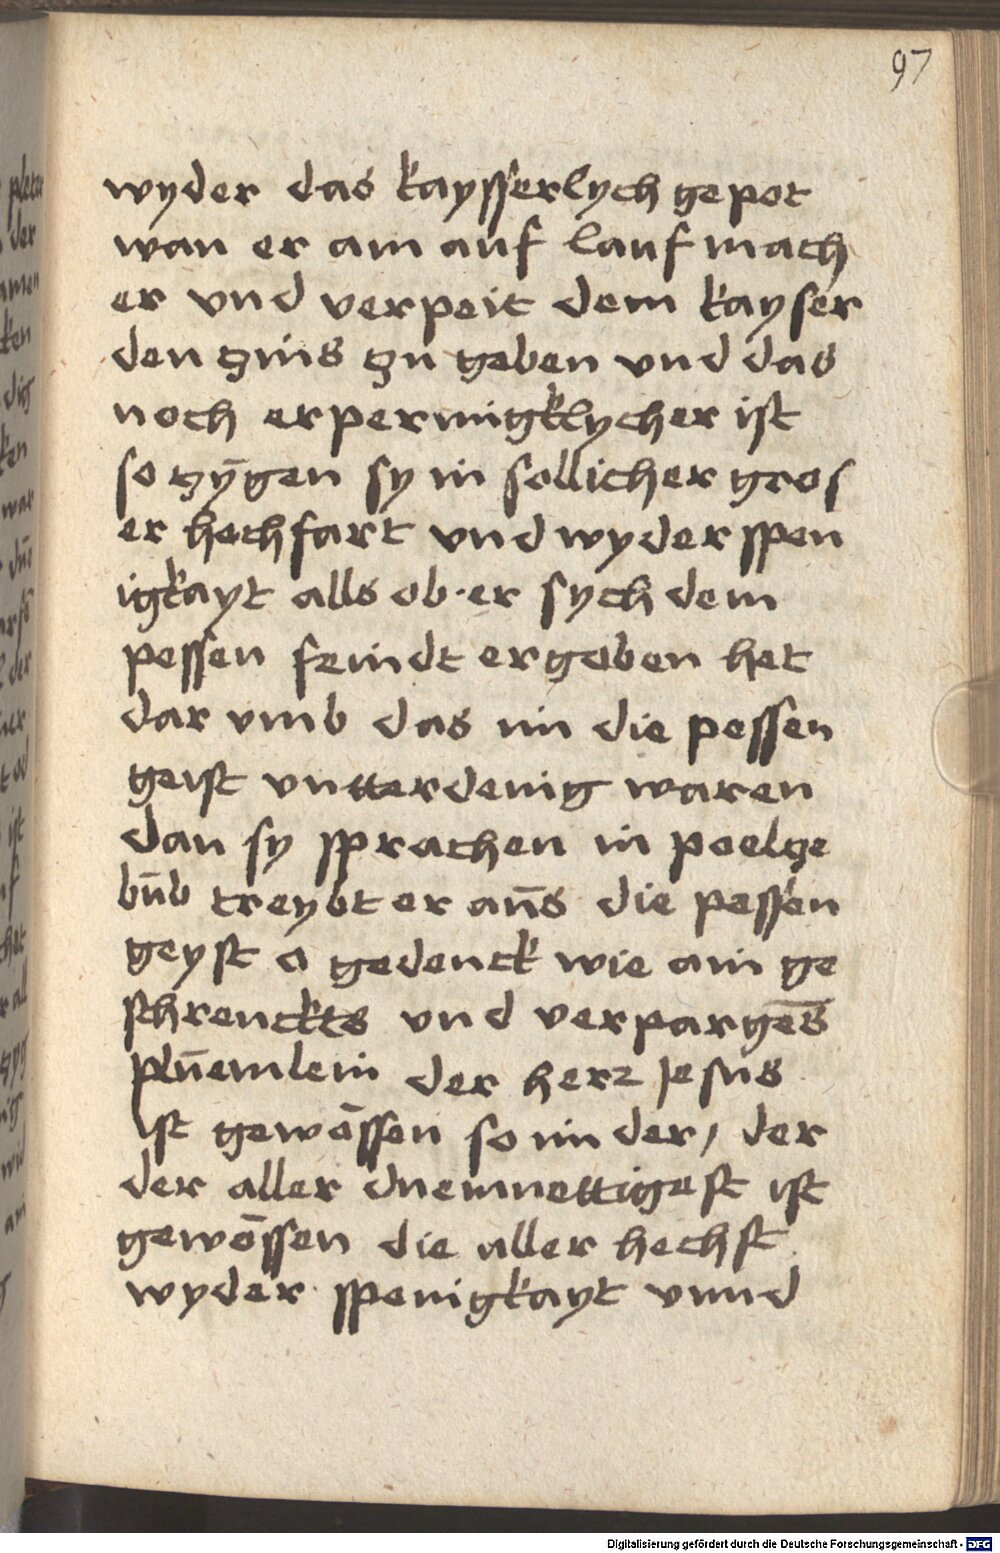 97
wyder das kaysserlych gepot
wan er am auf lauf mach
er vnd verpeit dem kayser
den zins zu geben vnd das
noch erpermigklycher ist
so zÿgen sy in sollicher gros
er hochfart vnd wyder spen
igkayt alls ob er sych dem
pessen feindt ergeben het
dar vmb das im die pessen
geist vntterdenig waren
dan sy sprachen in poelze
būb treybt er aūs die pessen
geyst o gedenck wie ain ge
schrenckts vnd verpargēs
plūemlein der herz Jesus
ist gewössen so im der, der
der aller duemuettigest ist
gewössen die aller hechst
wyder spenigkayt vnnd
Digitalisierung gefördert durch die Deutsche Forschungsgemeinschaft - DFG